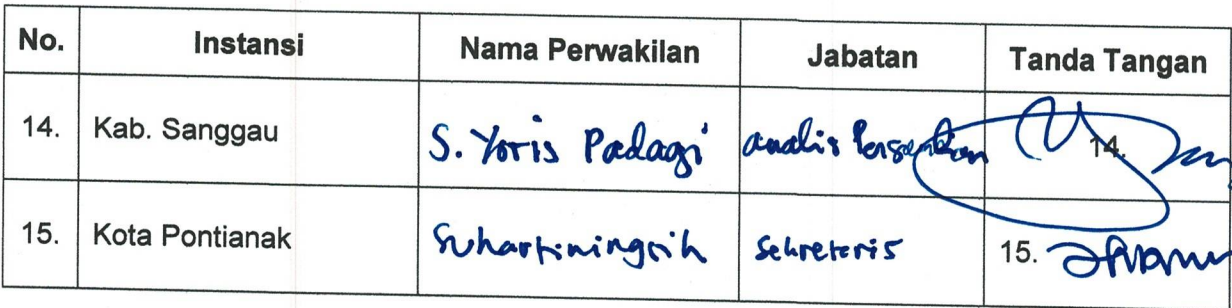 No. Instansi Nama Perwakilan Jabatan Tanda Tangan
14. Kab. Sanggau S. Yoris Padagi analis 14.
15. Kota Pontianak Suhartiningsih Sekretaris 15.